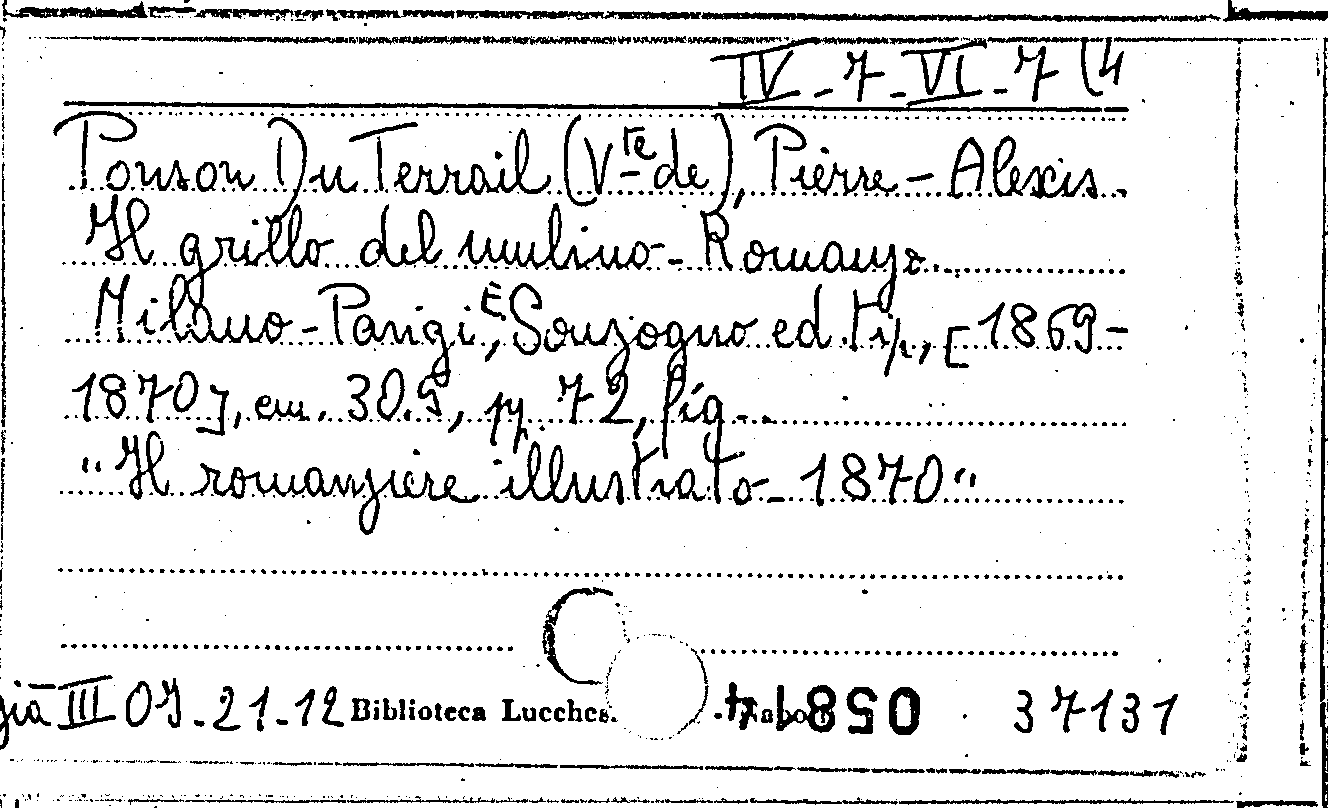 IV-7-VI-7 (4
Ponson Du Terrail (V.te de), Pierre-Alexis.
Il grillo del mulino - Romanzo.
Milano-Parigi, E. Sonzogno ed. tip., [1869-
1870], cm. 30.5, pp. 72, fig..
"Il romanziere illustrato - 1870"
già III OJ-21-12 Biblioteca Lucches. 058144 37131